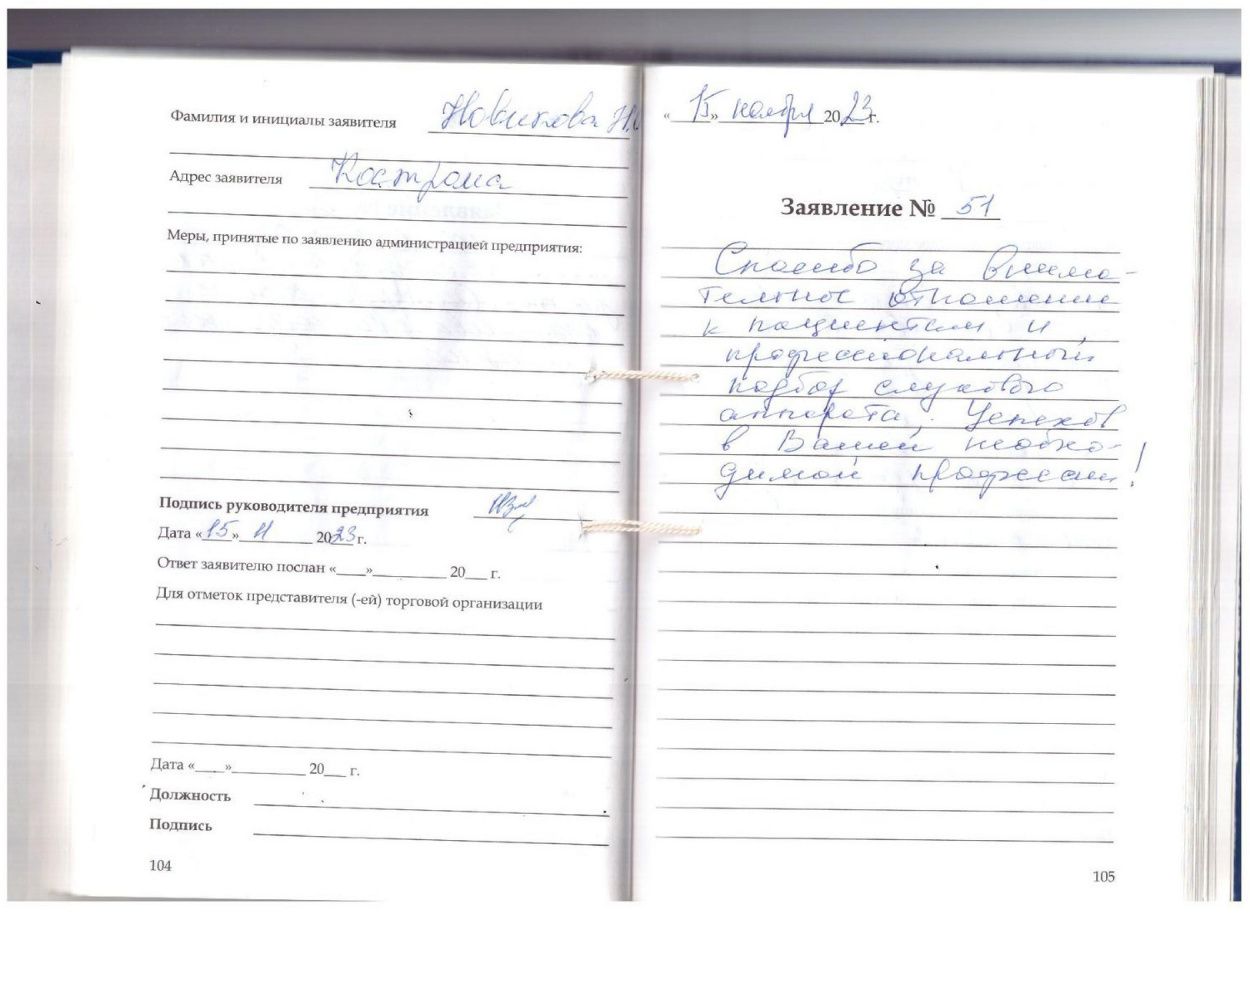 Фамилия и инициалы заявителя Новикова Н.
Адрес заявителя Кострома
Меры, принятые по заявлению администрацией предприятия:
Подпись руководителя предприятия
Дата «15» 11 2023 г.
Ответ заявителю послан «___»__________ 20___ г.
Для отметок представителя (-ей) торговой организации
Дата «___»__________ 20___ г.
Должность
Подпись
104
«15» ноября 2023 г.
Заявление № 51
Спасибо за внима-
тельное отношение
к пациентам и
профессиональный
подбор слухового
аппарата. Успехов
в Вашей необхо-
димой профессии!
105